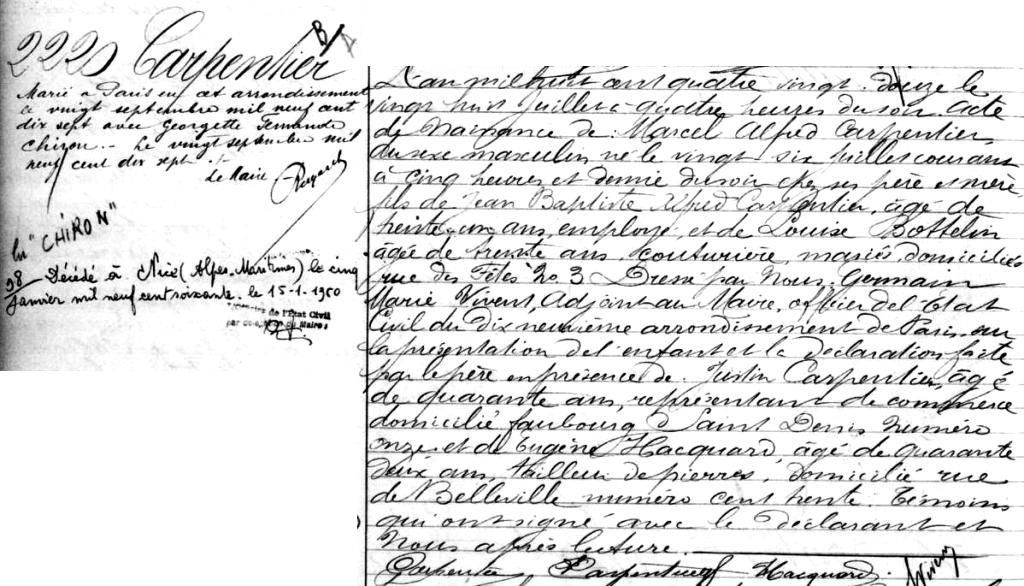 2225 Carpentier
B
Marié à Paris en cet arrondissement
le vingt septembre mil neuf cent
dix sept avec Georgette Fernande
Chiron.- Le vingt septembre mil
neuf cent dix sept ./.
Le Maire
lu "CHIRON"
98
Décédé à Nice (Alpes-Maritimes) le cinq
janvier mil neuf cent soixante. le 15-1-1960
de l'Etat Civil
du Maire
L'an mil huit cent quatre vingt douze le
vingt huit Juillet à quatre heures du soir Acte
de Naissance de Marcel Alfred Carpentier,
du sexe masculin né le vingt six juillet courant
à cinq heures et demie du soir chez ses père et mère
fils de Jean Baptiste Alfred Carpentier, âgé de
trente un ans, employé, et de Louise Bottelin
âgée de trente ans couturière, mariés, domiciliés
rue des Fêtes No 3 Dressé par Nous, Germain
Marie Vivent, Adjoint au Maire, officier de l'Etat
Civil du Dix neuvième arrondissement de Paris sur
la présentation de l'enfant et la déclaration faite
par le père en présence de Justin Carpentier, âgé
de quarante ans, représentant de commerce
domicilié faubourg Saint Denis numéro
onze et de Eugène Hacquard, âgé de quarante
deux ans, tailleur de pierres, domicilié rue
de Belleville numéro cent trente. Témoins
qui ont signé avec le déclarant et
Nous après lecture.
Carpentier Carpentier Hacquard Vivent